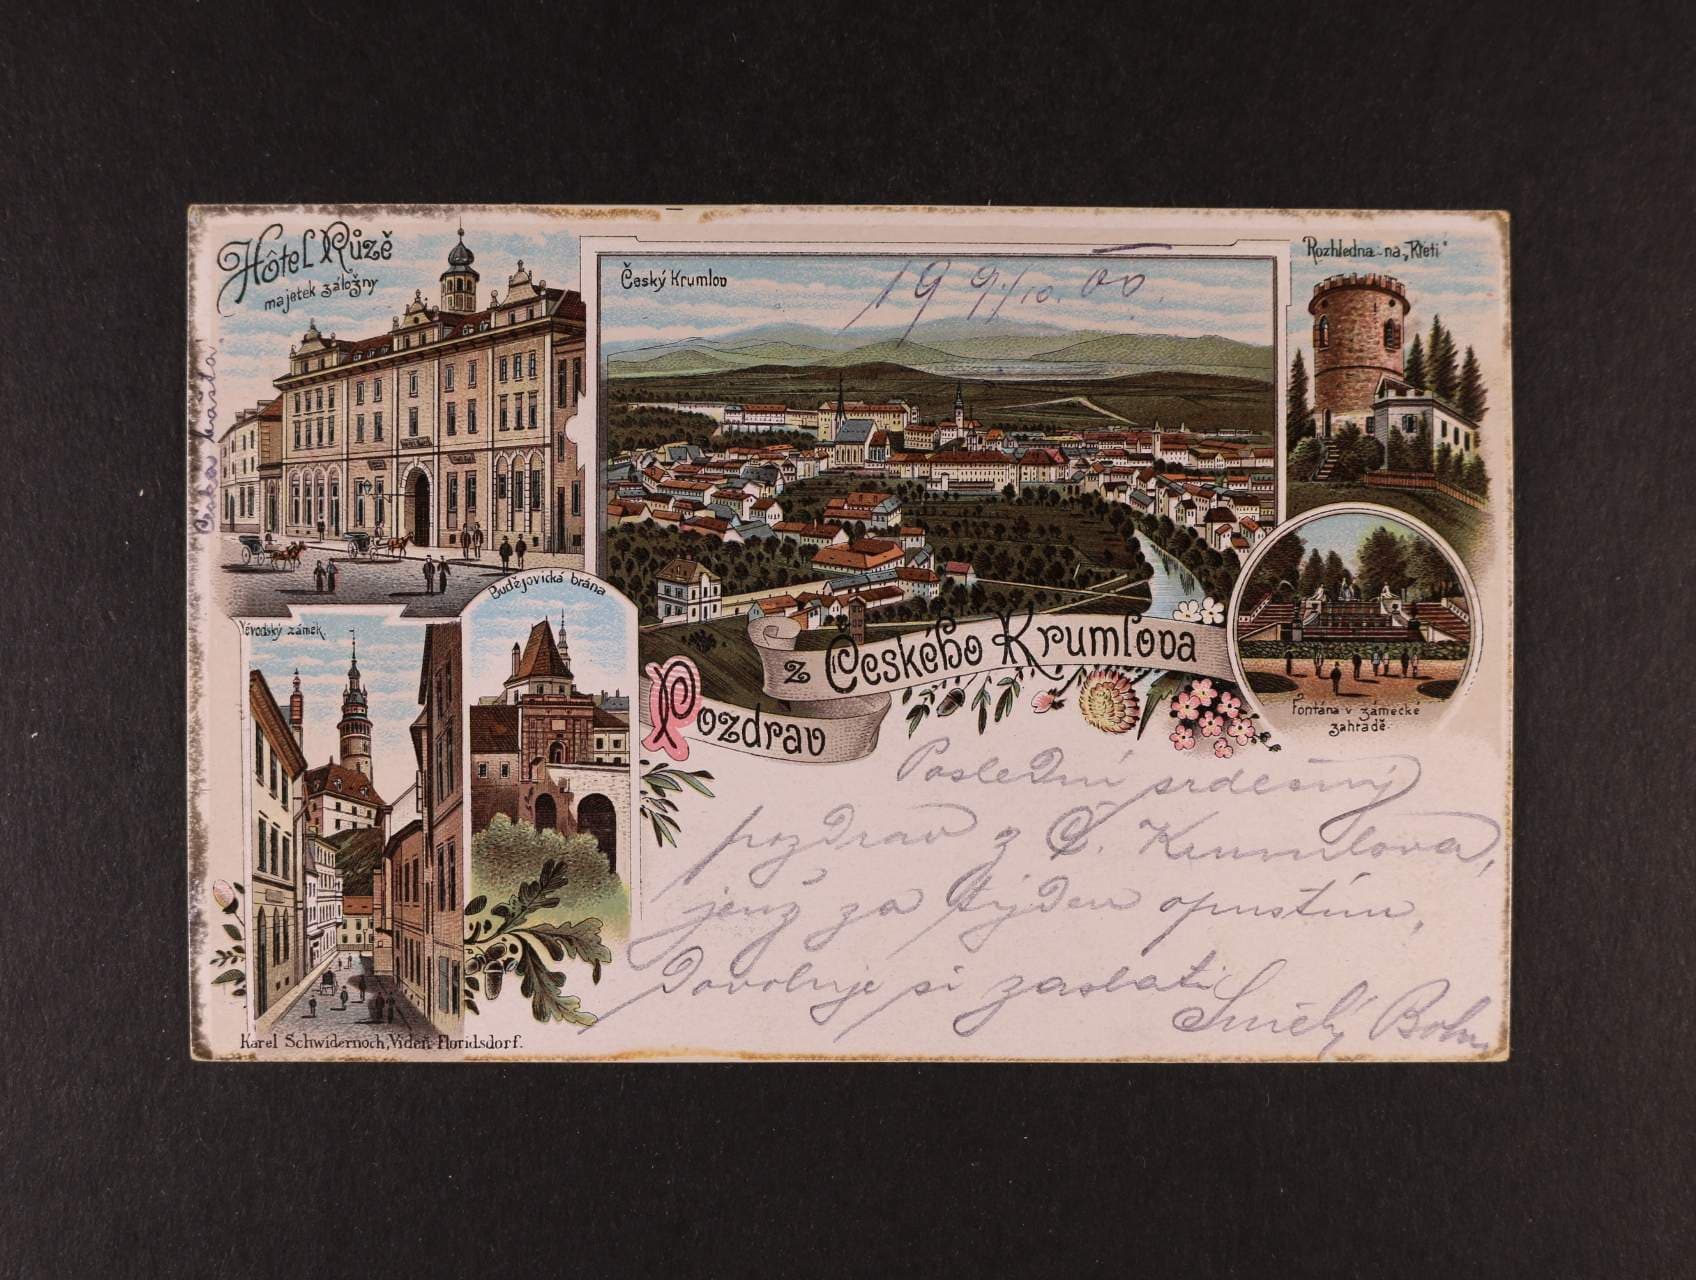 Hôtel Růzě
majetek záložny
Český Krumlov
19 9/10. 00.
Rozhledna na „Kleti"
Vévodský zámek.
Budějovická brána
Pozdrav
z Českého Krumlova
Fontána v zámecké
zahradě.
Poslední srdečný
pozdrav z Č. Krumlova,
jenž za týden opustím,
Dovoluje si zaslati
Karel Schwidernoch, Vídeň-Floridsdorf.